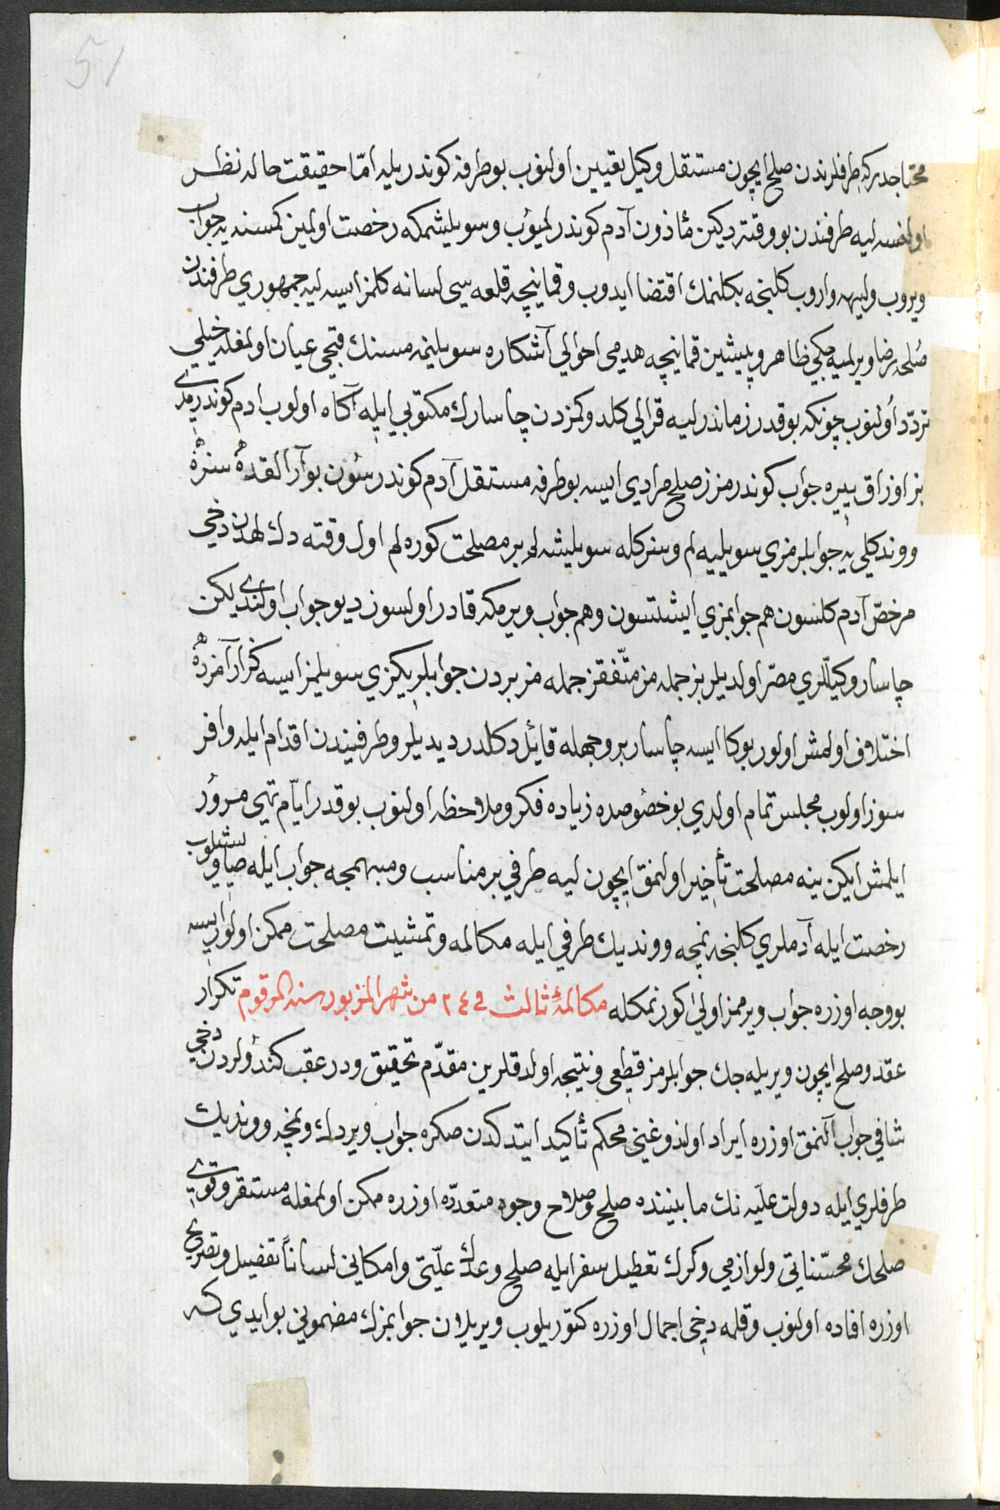 51
محتاجدركه طرفلرندن صلح ايچون مستقل وكيل تعيين اولنوب بو طرفه كوندريله امّا حقيقت حاله نظر
اولنسه ليه طرفندن بو وقته دكين مأذون آدم كوندرلميوب و سويلشمكه رخصت اولمين كمسنه يه جواب
ويروب وليهه واروب كلنجه بكلنمك اقتضا ايدوب وقماينچه قلعه سى لسانه كلمز ايسه ليه جمهوري طرفندن
صلحه رضا ويرلميه جكي ظاهر و پيشين قماينچه هدمى احوالي آشكاره سويلنمه مسنك قبحى عيان اولمغله خيلي
تردّد اولنوب چونكه بو قدر زماندر ليه قرالي كلدوكمزدن چاسارك مكتوبي ايله آكاه اولوب ادم كوندرمدى
بز اوزاق ييره جواب كوندرمز ز صلح مرادي ايسه بو طرفه مستقل آدم كوندرسون بوآرالقده سزه
و ونديكلى يه جوابلرمزي سويليه لم و سزكله سويلشه لم بر مصلحت كوره لم اول وقته دك لهدن دخي
مرخصّ آدم كلسون هم جوابمزي ايشتسون و هم جواب ويرمكه قادر اولسون ديو جواب اولندى ليكن
چاسار وكيللري مصرّ اولديلر بز جمله مز متّفقز جمله مز بردن جوابلريكزي سويلمز ايسه كز ارآمزده
اختلاف اولمش اولور بوكا ايسه چاسار بر وجهله قائل دكلدر ديديلر و طرفيندن اقدام ايله وافر
سوز اولوب مجلس تمام اولدي بو خصوصده زياده فكر و ملاحظه اولنوب بو قدر ايّام تهى مرور
ايلمش ايكن ينه مصلحت تأخير اولنمق ايچون ليه طرفي بر مناسب و مبهمجه جواب ايله صاوشيلوب
رخصت ايله آدملري كلنجه نمچه و ونديك طرفي ايله مكالمه و تمشيت مصلحت ممكن اولور ايسه
بو وجه اوزره جواب ويرممز اولى كورنمكله مكالمۀ ثالث فى ٢٤ من شهر المزبور سنه المرقوم تكرار
عقد و صلح ايچون ويريله جك جوابلرمز قطعى و نتيجه اولدقلرين مقدّم تحقيق و در عقب كندولردن دخي
شافي جواب آلنمق اوزره ايراد اولندوغينى محكم تأكيد ايتدكدن صكره جواب ويردك و نمچه و ونديك
طرفلري ايله دولت عليّه نك مابيننده صلح و صلاح وجوه متعدّده اوزره ممكن اولمغله مستقر و قوى
صلحك محسّناتى و لوازمي و كرك تعطيل سفر ايله صلح و عدك علّتى و امكاني لساناً تفضيل و تصريح
اوزره افاده اولنوب و قلمه دخى اجمال اوزره كتوريلوب ويريلان جوابمزك مضموني بو ايدي كه